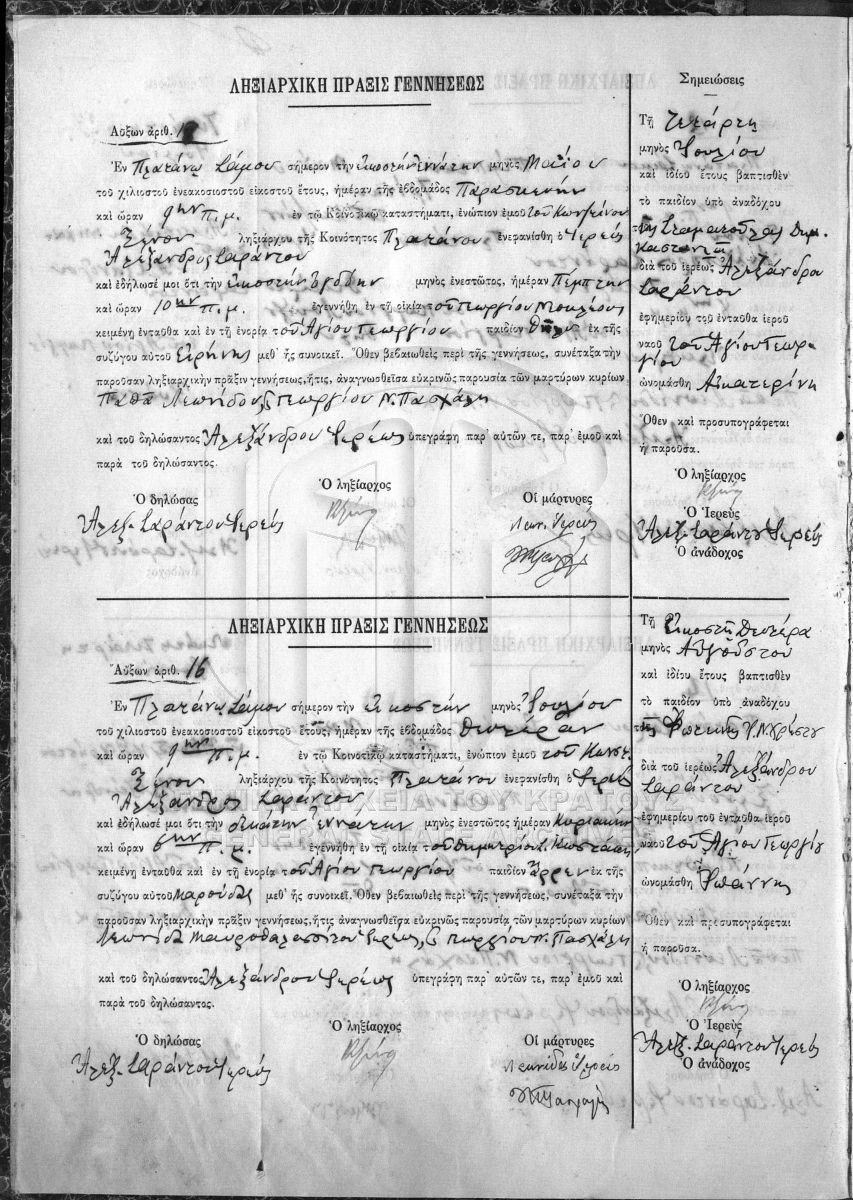 ΛΗΞΙΑΡΧΙΚΗ ΠΡΑΞΙΣ ΓΕΝΝΗΣΕΩΣ
Αὔξων ἀριθ.
Ἐν Πλατάνῳ Σάμου σήμερον τὴν εἰκοστὴν ἐννάτην μηνὸς Μαΐου
τοῦ χιλιοστοῦ ἐνεακοσιοστοῦ εἰκοστοῦ ἔτους, ἡμέραν τῆς ἑβδομάδος Παρασκευὴν
καὶ ὥραν 9ην π.μ. ἐν τῷ Κοινοτικῷ καταστήματι, ἐνώπιον ἐμοῦ τοῦ Κωνσταντίνου
Ξένου ληξιάρχου τῆς Κοινότητος Πλατάνου ἐνεφανίσθη ὁ Ἱερεὺς
Ἀλέξανδρος Σαράντου
καὶ ἐδήλωσέ μοι ὅτι τὴν εἰκοστὴν ὀγδόην μηνὸς ἐνεστῶτος, ἡμέραν Πέμπτην
καὶ ὥραν 10ην π.μ. ἐγεννήθη ἐν τῇ οἰκίᾳ τοῦ Γεωργίου
κειμένῃ ἐνταῦθα καὶ ἐν τῇ ἐνορίᾳ τοῦ Ἁγίου Γεωργίου παιδίον θῆλυ ἐκ τῆς
συζύγου αὐτοῦ Εἰρήνης μεθ' ἧς συνοικεῖ. Ὅθεν βεβαιωθεὶς περὶ τῆς γεννήσεως, συνέταξα τὴν
παροῦσαν ληξιαρχικὴν πρᾶξιν γεννήσεως, ἥτις, ἀναγνωσθεῖσα εὐκρινῶς παρουσίᾳ τῶν μαρτύρων κυρίων
Παπᾶ Λεωνίδου, Γεωργίου Ν. Πασχάλη
καὶ τοῦ δηλώσαντος Ἀλεξάνδρου Ἱερέως ὑπεγράφη παρ' αὐτῶν τε, παρ' ἐμοῦ καὶ
παρὰ τοῦ δηλώσαντος.
Ὁ δηλώσας Ὁ ληξίαρχος Οἱ μάρτυρες
Ἀλεξ. Σαράντου Ἱερεύς Λεων. Ἱερεύς
Σημειώσεις
Τῇ Τετάρτῃ
μηνὸς Ἰουλίου
καὶ ἰδίου ἔτους βαπτισθὲν
τὸ παιδίον ὑπὸ ἀναδόχου
τῆς Σταματούλας Δημ.
διὰ τοῦ ἱερέως Ἀλεξάνδρου
Σαράντου
ἐφημερίου τοῦ ἐνταῦθα ἱεροῦ
ναοῦ τοῦ Ἁγίου Γεωρ-
γίου
ὠνομάσθη Αἰκατερίνη
Ὅθεν καὶ προσυπογράφεται
ἡ παροῦσα.
Ὁ ληξίαρχος
Ὁ Ἱερεὺς
Ἀλεξ. Σαράντου Ἱερεύς
Ὁ ἀνάδοχος
ΛΗΞΙΑΡΧΙΚΗ ΠΡΑΞΙΣ ΓΕΝΝΗΣΕΩΣ
Αὔξων ἀριθ. 16
Ἐν Πλατάνῳ Σάμου σήμερον τὴν εἰκοστὴν μηνὸς Ἰουλίου
τοῦ χιλιοστοῦ ἐνεακοσιοστοῦ εἰκοστοῦ ἔτους, ἡμέραν τῆς ἑβδομάδος Δευτέραν
καὶ ὥραν 9ην π.μ. ἐν τῷ Κοινοτικῷ καταστήματι, ἐνώπιον ἐμοῦ τοῦ Κωνστ.
Ξένου ληξιάρχου τῆς Κοινότητος Πλατάνου ἐνεφανίσθη ὁ Ἱερεὺς
Ἀλέξανδρος Σαράντου
καὶ ἐδήλωσέ μοι ὅτι τὴν δεκάτην ἐννάτην μηνὸς ἐνεστῶτος ἡμέραν Κυριακὴν
καὶ ὥραν 6ην π.μ. ἐγεννήθη ἐν τῇ οἰκίᾳ τοῦ Δημητρίου
κειμένῃ ἐνταῦθα καὶ ἐν τῇ ἐνορίᾳ τοῦ Ἁγίου Γεωργίου παιδίον ἄρρεν ἐκ τῆς
συζύγου αὐτοῦ Μαρούδας μεθ' ἧς συνοικεῖ. Ὅθεν βεβαιωθεὶς περὶ τῆς γεννήσεως, συνέταξα τὴν
παροῦσαν ληξιαρχικὴν πρᾶξιν γεννήσεως, ἥτις ἀναγνωσθεῖσα εὐκρινῶς παρουσίᾳ τῶν μαρτύρων κυρίων
Λεωνίδα Ἱερέως, Γεωργίου Ν. Πασχάλη
καὶ τοῦ δηλώσαντος Ἀλεξάνδρου Ἱερέως ὑπεγράφη παρ' αὐτῶν τε, παρ' ἐμοῦ καὶ
παρὰ τοῦ δηλώσαντος.
Ὁ δηλώσας Ὁ ληξίαρχος Οἱ μάρτυρες
Ἀλεξ. Σαράντου Ἱερεύς Λεωνίδας Ἱερεύς
Τῇ Εἰκοστῇ Δευτέρᾳ
μηνὸς Αὐγούστου
καὶ ἰδίου ἔτους βαπτισθὲν
τὸ παιδίον ὑπὸ ἀναδόχου
τῆς Φωτεινῆς
διὰ τοῦ ἱερέως Ἀλεξάνδρου
Σαράντου
ἐφημερίου τοῦ ἐνταῦθα ἱεροῦ
ναοῦ τοῦ Ἁγίου Γεωργίου
ὠνομάσθη Ἰωάννης
Ὅθεν καὶ προσυπογράφεται
ἡ παροῦσα.
Ὁ ληξίαρχος
Ὁ Ἱερεὺς
Ἀλεξ. Σαράντου Ἱερεύς
Ὁ ἀνάδοχος